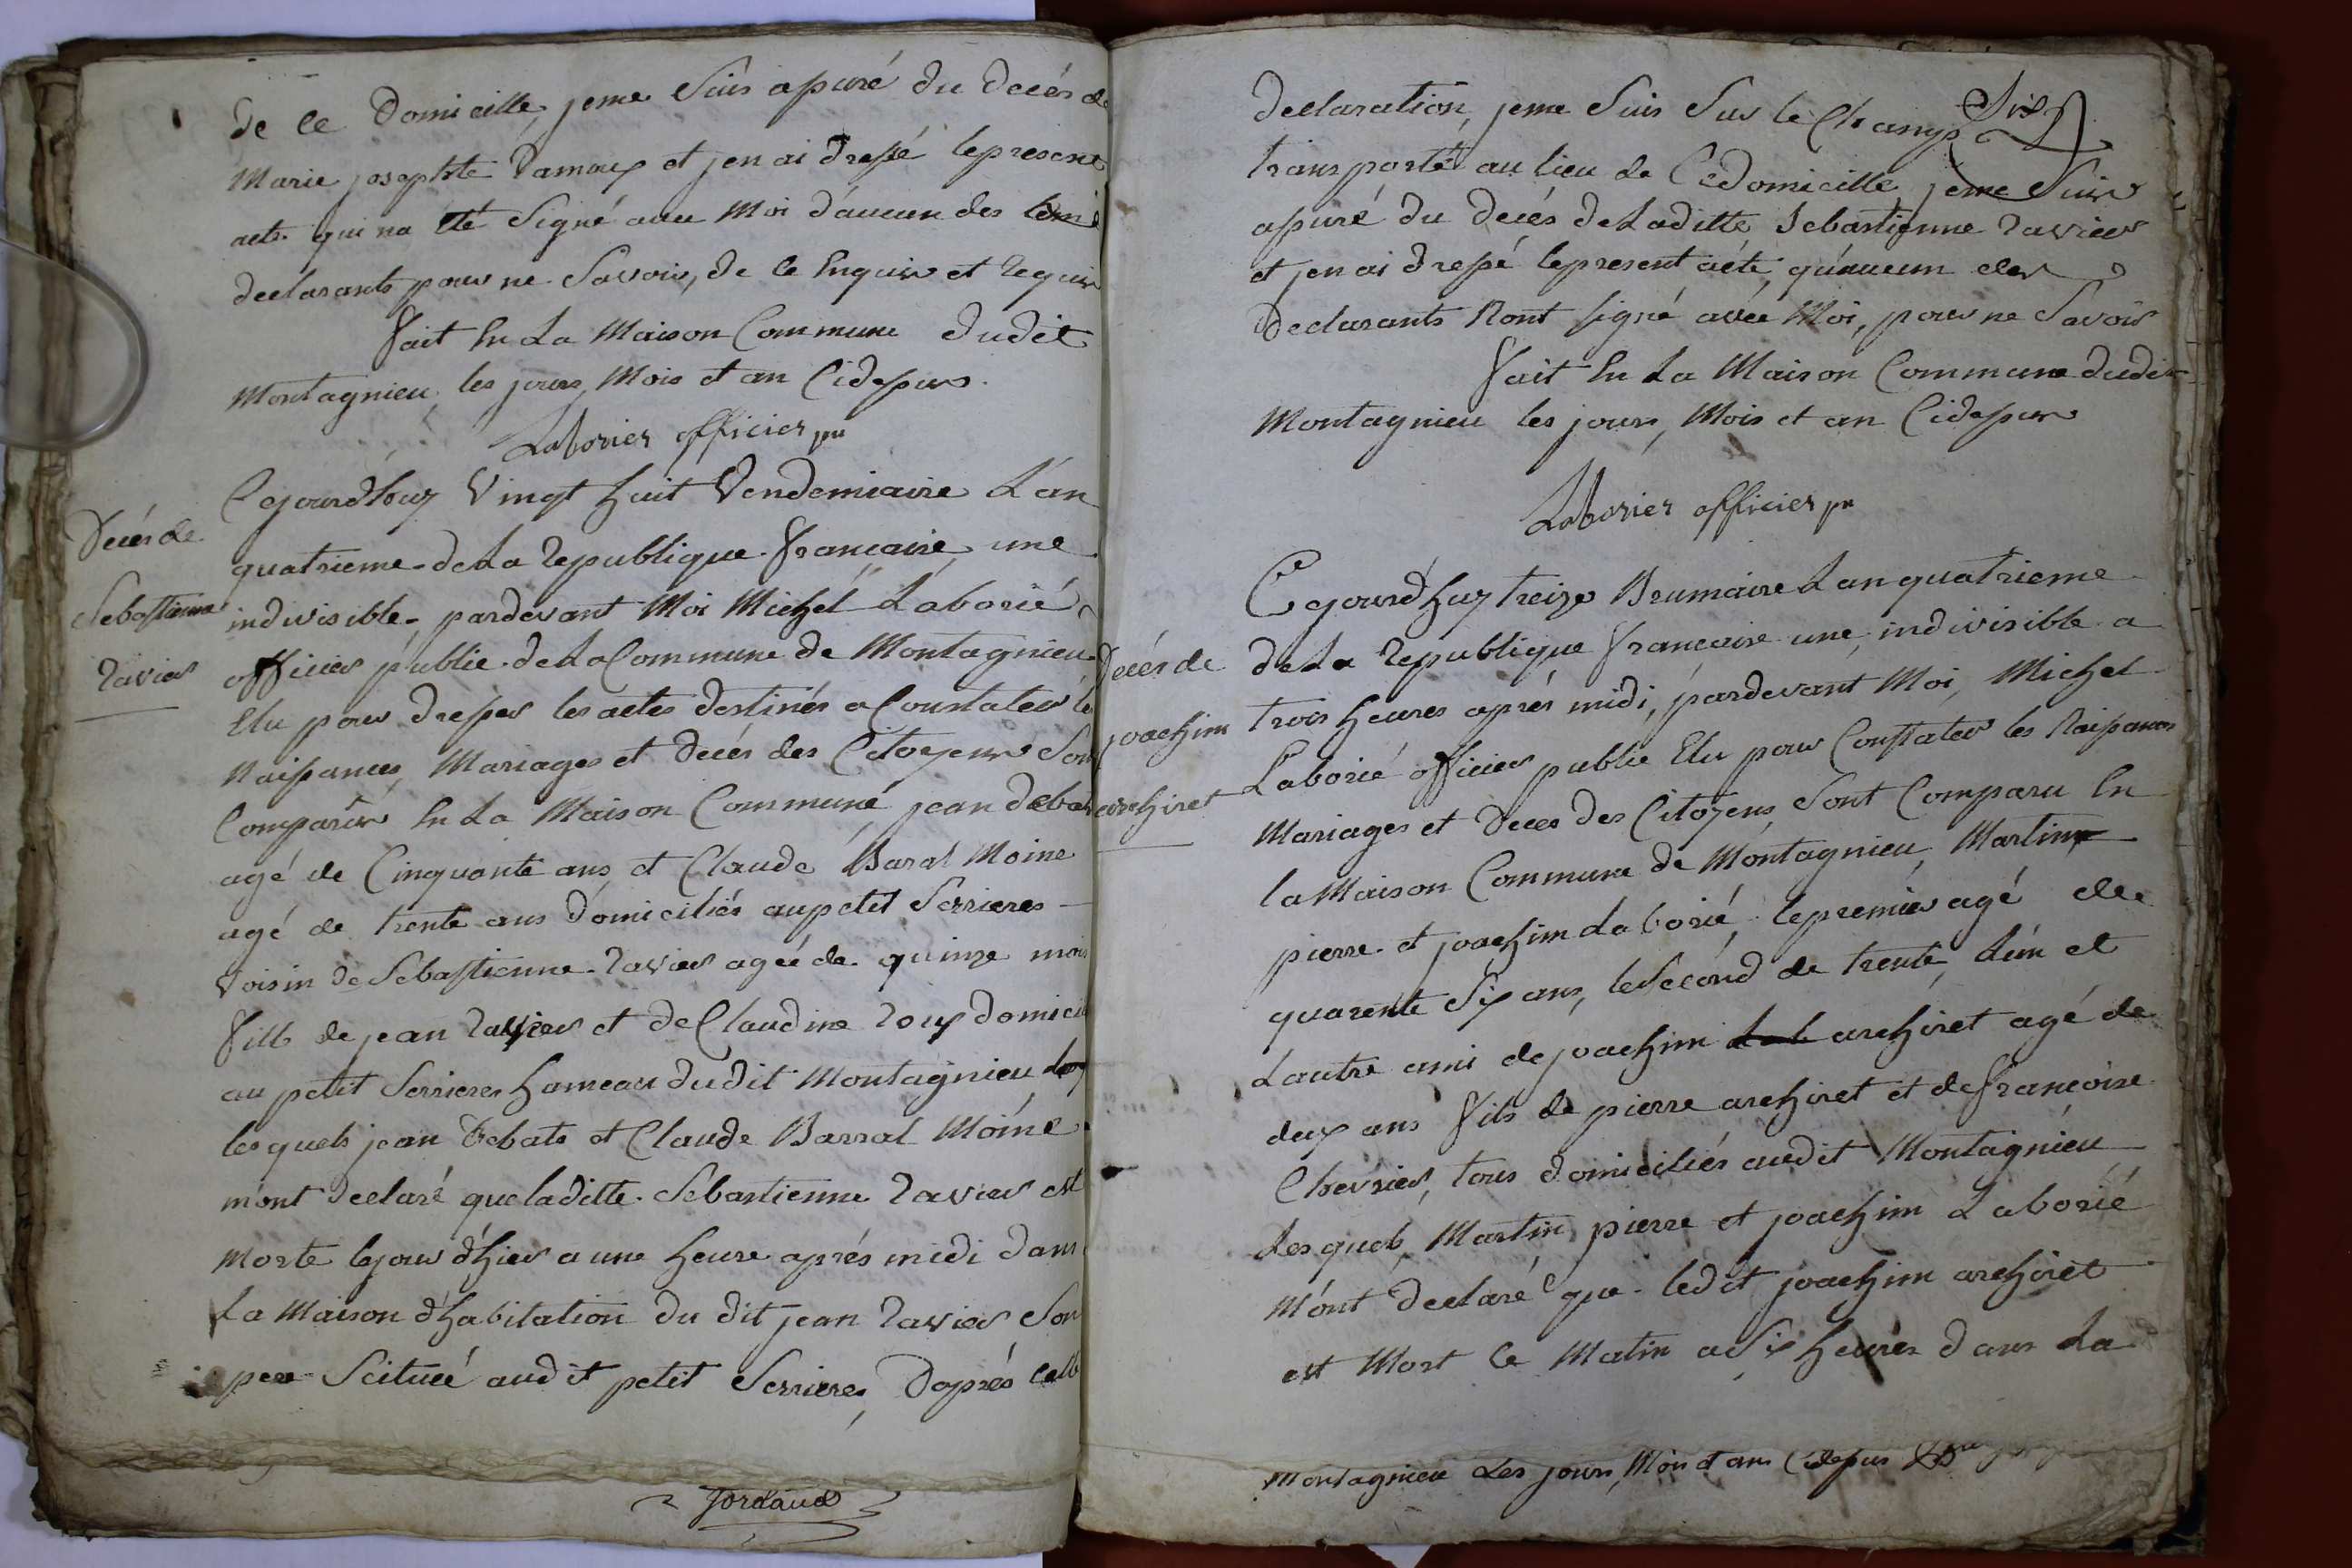 de ce Domicille, jeme Suis apuré du Decés de
Marie josephte Damoux et jen ai dressé lepresent
acte qui na été Signé avec Moi d'aucun des
declarants pour ne Savoir, de ce Enquis et Requis
fait En La Maison Commune dudit
Montagnieu, les jours, Mois et an Cidessus.
Laborier officier pu
Cejourd'huy Vingt huit Vendemiaire L'an
quatrieme de La Republique francaise, une
Decés de
Sebastienne
Ravier
indivisible, pardevant Moi Michel Laborié
officier public de La Commune de Montagnieu
Elu pour dresser les actes destinés a Constater les
Naissances, Mariages et Decés des Citoyens Son
Comparus En La Maison Commune, jean debat
agé de Cinquante ans, et Claude Baral Moine
agé de trente ans domiciliés aupetit Serrieres
Voisin de Sebastienne Ravier agée de quinze mois
fille de jean Ravier et de Claudine Roux domicil
au petit Serrieres hameau dudit Montagnieu
les quels jean Debats et Claude Barral Moine
m'ont declaré queladitte Sebastienne Ravier est
Morte lejour d'hier a une heure aprés midi dans
La Maison d'habitation du dit jean Ravier Son
pere Scituée audit petit Serrieres, D'aprés cette
Jordaud
Six
declaration, jeme Suis Sur le Champ
transporté au lieu de Cedomicille, jeme Suis
apuré du decés de Laditte Sebastienne Ravier
et jen ai dressé lepresent acte, qu'aucun des
Declarants N'ont signé avec Moi, pour ne Savoir
fait En La Maison Commune dudit
Montagnieu les jours, Mois et an Cidessus
Laborier officier pu
Cejourd'huy treize Brumaire L'an quatrieme
Decés de
joachim
archiret
de La Republique francaise une, indivisible a
trois heures aprés midi, pardevant Moi, Michel
Laborié officier public Elu pour Constater les Naissances
Mariages et Deces des Citoyens, Sont Comparu En
la Maison Commune de Montagnieu, Martin
pierre et joachim Laborié, lepremier agé de
quarente Six ans, leSecond de trente, L'un et
L'autre ami de joachim archiret agé de
deux ans fils de pierre archiret et de francoise
Chevrier, tous domiciliés audit Montagnieu
Lesquels, Martin pierre et joachim Laborié
M'ont declaré que ledit joachim archiret
est Mort ce Matin a Six heures dans La
Montagnieu Les jours, Mois et an Cidessus